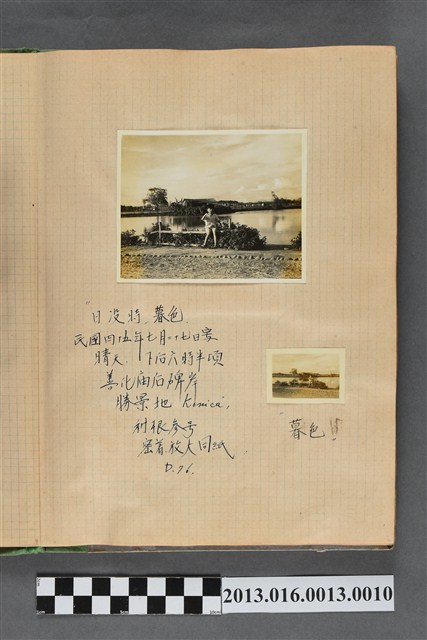 "日没時,暮色
民國四十五年七月十七日寫
晴天. 下后六時半頃
善化庙后碑岸
勝景地 Konica,
利根参号
密着放大同紙
D.76.
暮色!!
2013.016.0013.0010